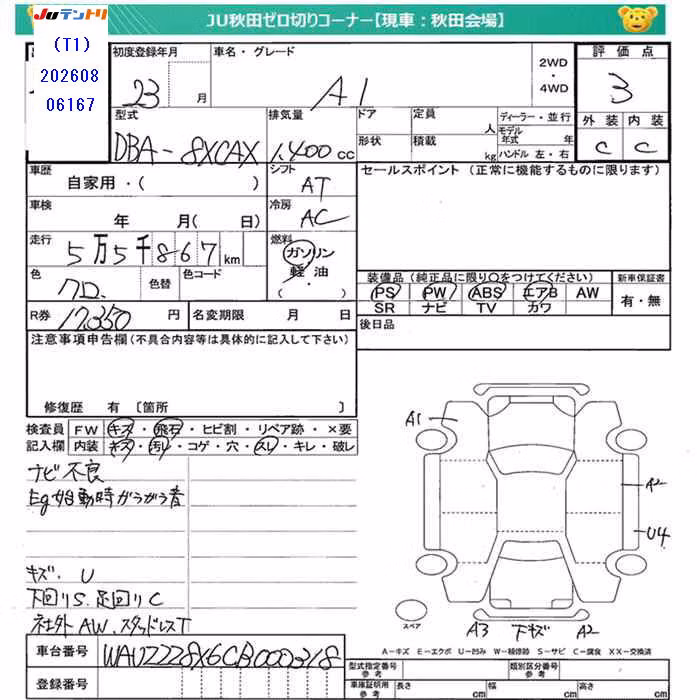 JUテントリ
JU秋田ゼロ切りコーナー【現車：秋田会場】
(T1)
202608
06167
初度登録年月
23 月
車名・グレード
A1
2WD
・
4WD
評価点
3
外装 内装
C C
型式
DBA-8XCAX
排気量
1,400 cc
ドア
定員
人
形状
積載
kg
ディーラー・並行
モデル年式 年
ハンドル 左・右
車歴
自家用・( )
シフト
AT
セールスポイント (正常に機能するものに限ります)
車検
年 月( 日)
冷房
AC
走行
5万5千867 km
燃料
ガソリン
軽・油
・( )
色
クロ
色替
色コード
装備品 (純正品に限り○をつけてください)
PS PW ABS エアB AW
SR ナビ TV カワ
新車保証書
有・無
R券
17,350 円
名変期限 月 日
後日品
注意事項申告欄(不具合内容等は具体的に記入して下さい)
修復歴 有 〔箇所 〕
検査員記入欄
FW キズ・飛石・ヒビ割・リペア跡・×要
内装 キズ・汚レ・コゲ・穴・スレ・キレ・破レ
ナビ不良
Eg始動時ガラガラ音
キズ、U
下回りS、足回りC
社外AW、スタッドレスT
A1
A2
U4
スペア
A3 下キズ A2
A-キズ E-エクボ U-凹み W-補修跡 S-サビ C-腐食 XX-交換済
車台番号
WAUZZZ8X6CB000318
登録番号
型式指定番号
参考
類別区分番号
参考
車庫証明用
参考
長さ cm
幅 cm
高さ cm